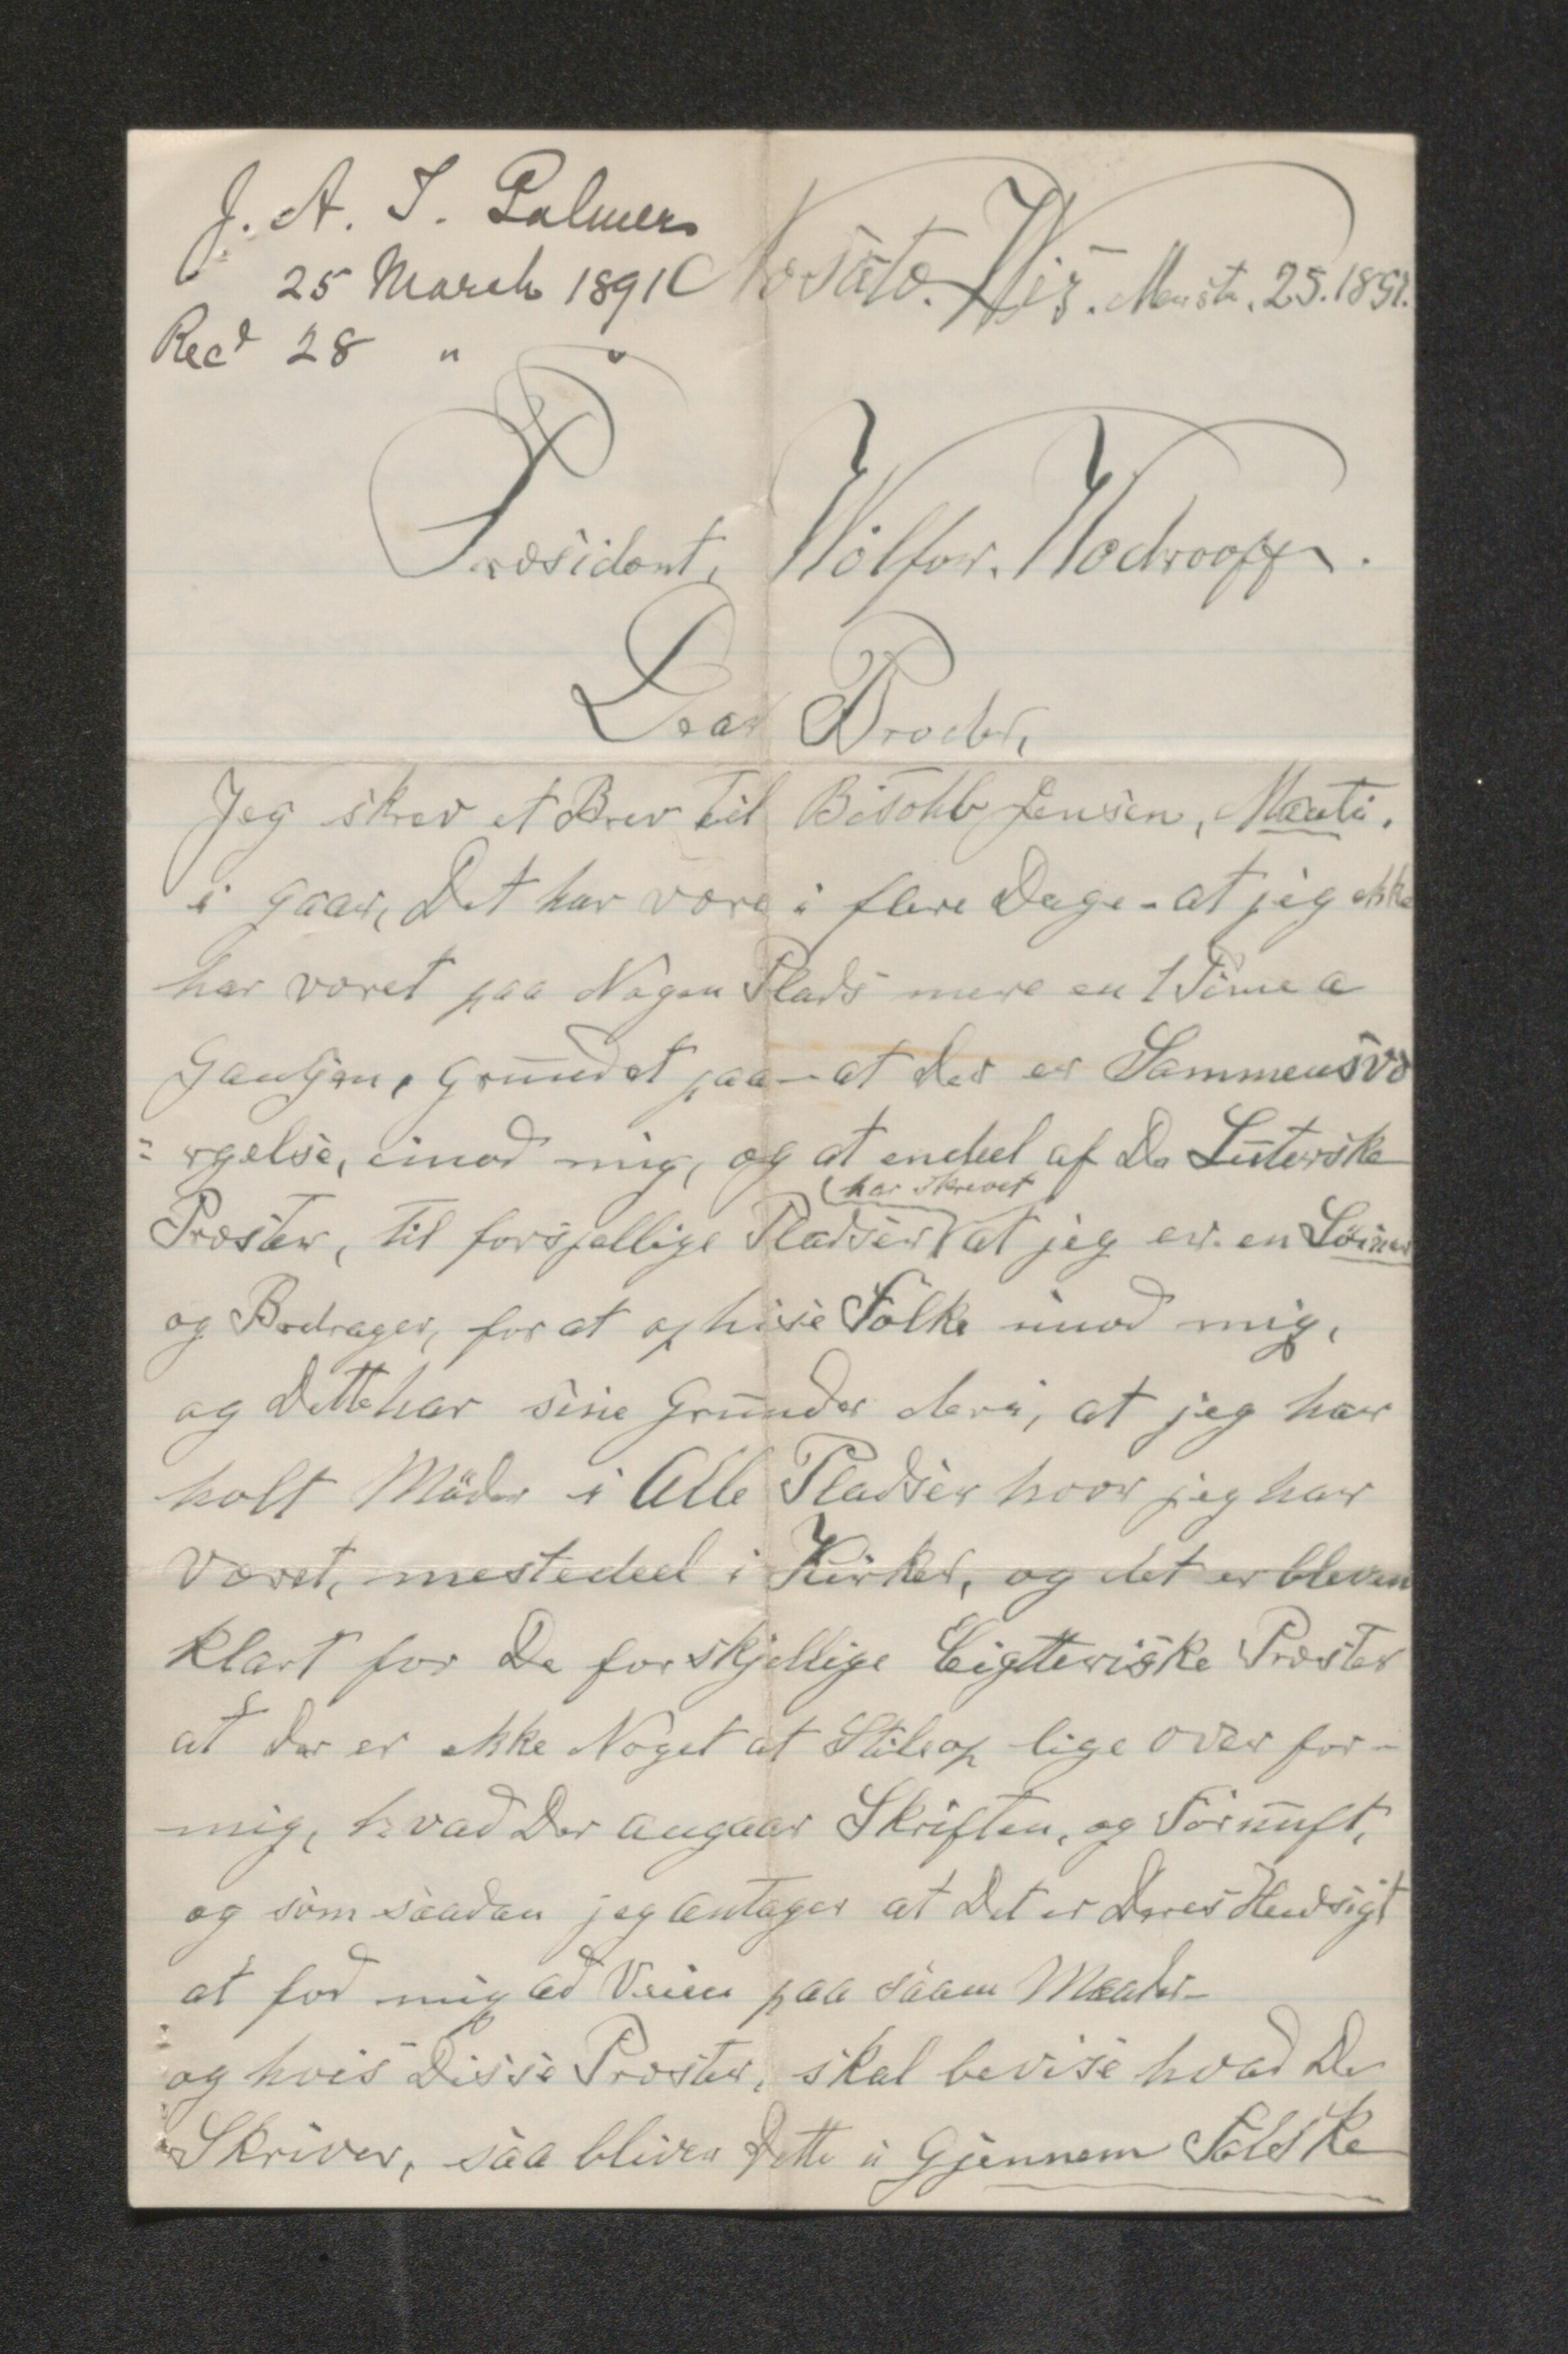 J. A. I. Palmer
25 March 1891
Rec'd 28 " "
Wis. 25. 1891.
Præsident, Wilfor. Wodrooff.
Dear Broder,
Jeg skrev et Brev til Bisohb Jensen, Manti.
i gaar, Det har være i flere Dage - at jeg ekke
har været paa Nogen Plads mere en 1 Time a
Gangen, Grundet paa - at der er Sammensvæ
= rgelse, imod mig, og at endeel af De Luterske
(har skrevet
Præster, til forsjellige Pladser) at jeg er en Löiner
og Bedrager, for at ophise Folke imod mig,
og Dette har sine Grunder deri, at jeg har
holt Möder i Alle Pladser hvor jeg har
været, mestedeel i Kirker, og det er bleven
klart for De forskjellige Præster
at der er ekke Noget at Stile op lige over for -
mig, hvad Der angaar Skriften, og Fornuft,
og som saadan jeg antager at Det er Deres Hendsigt
at fod mig ad Veien paa saam Maader -
og hvis Disse Præster, skal bevise hvad De
Skriver, saa bliver Dette i Gjennem Falske